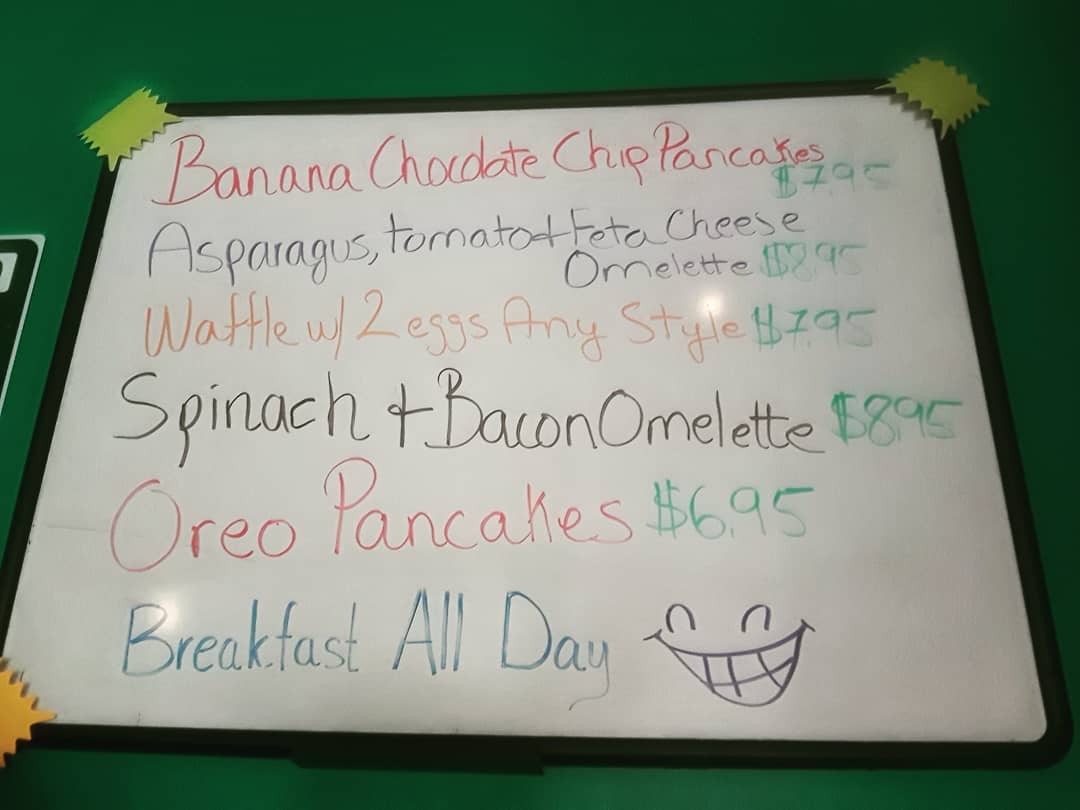 Banana Chocolate Chip Pancakes
$7.95
Asparagus, tomato + Feta Cheese
Omelette $8.95
Waffle w/ 2 eggs Any Style $7.95
Spinach + Bacon Omelette $8.95
Oreo Pancakes $6.95
Breakfast All Day